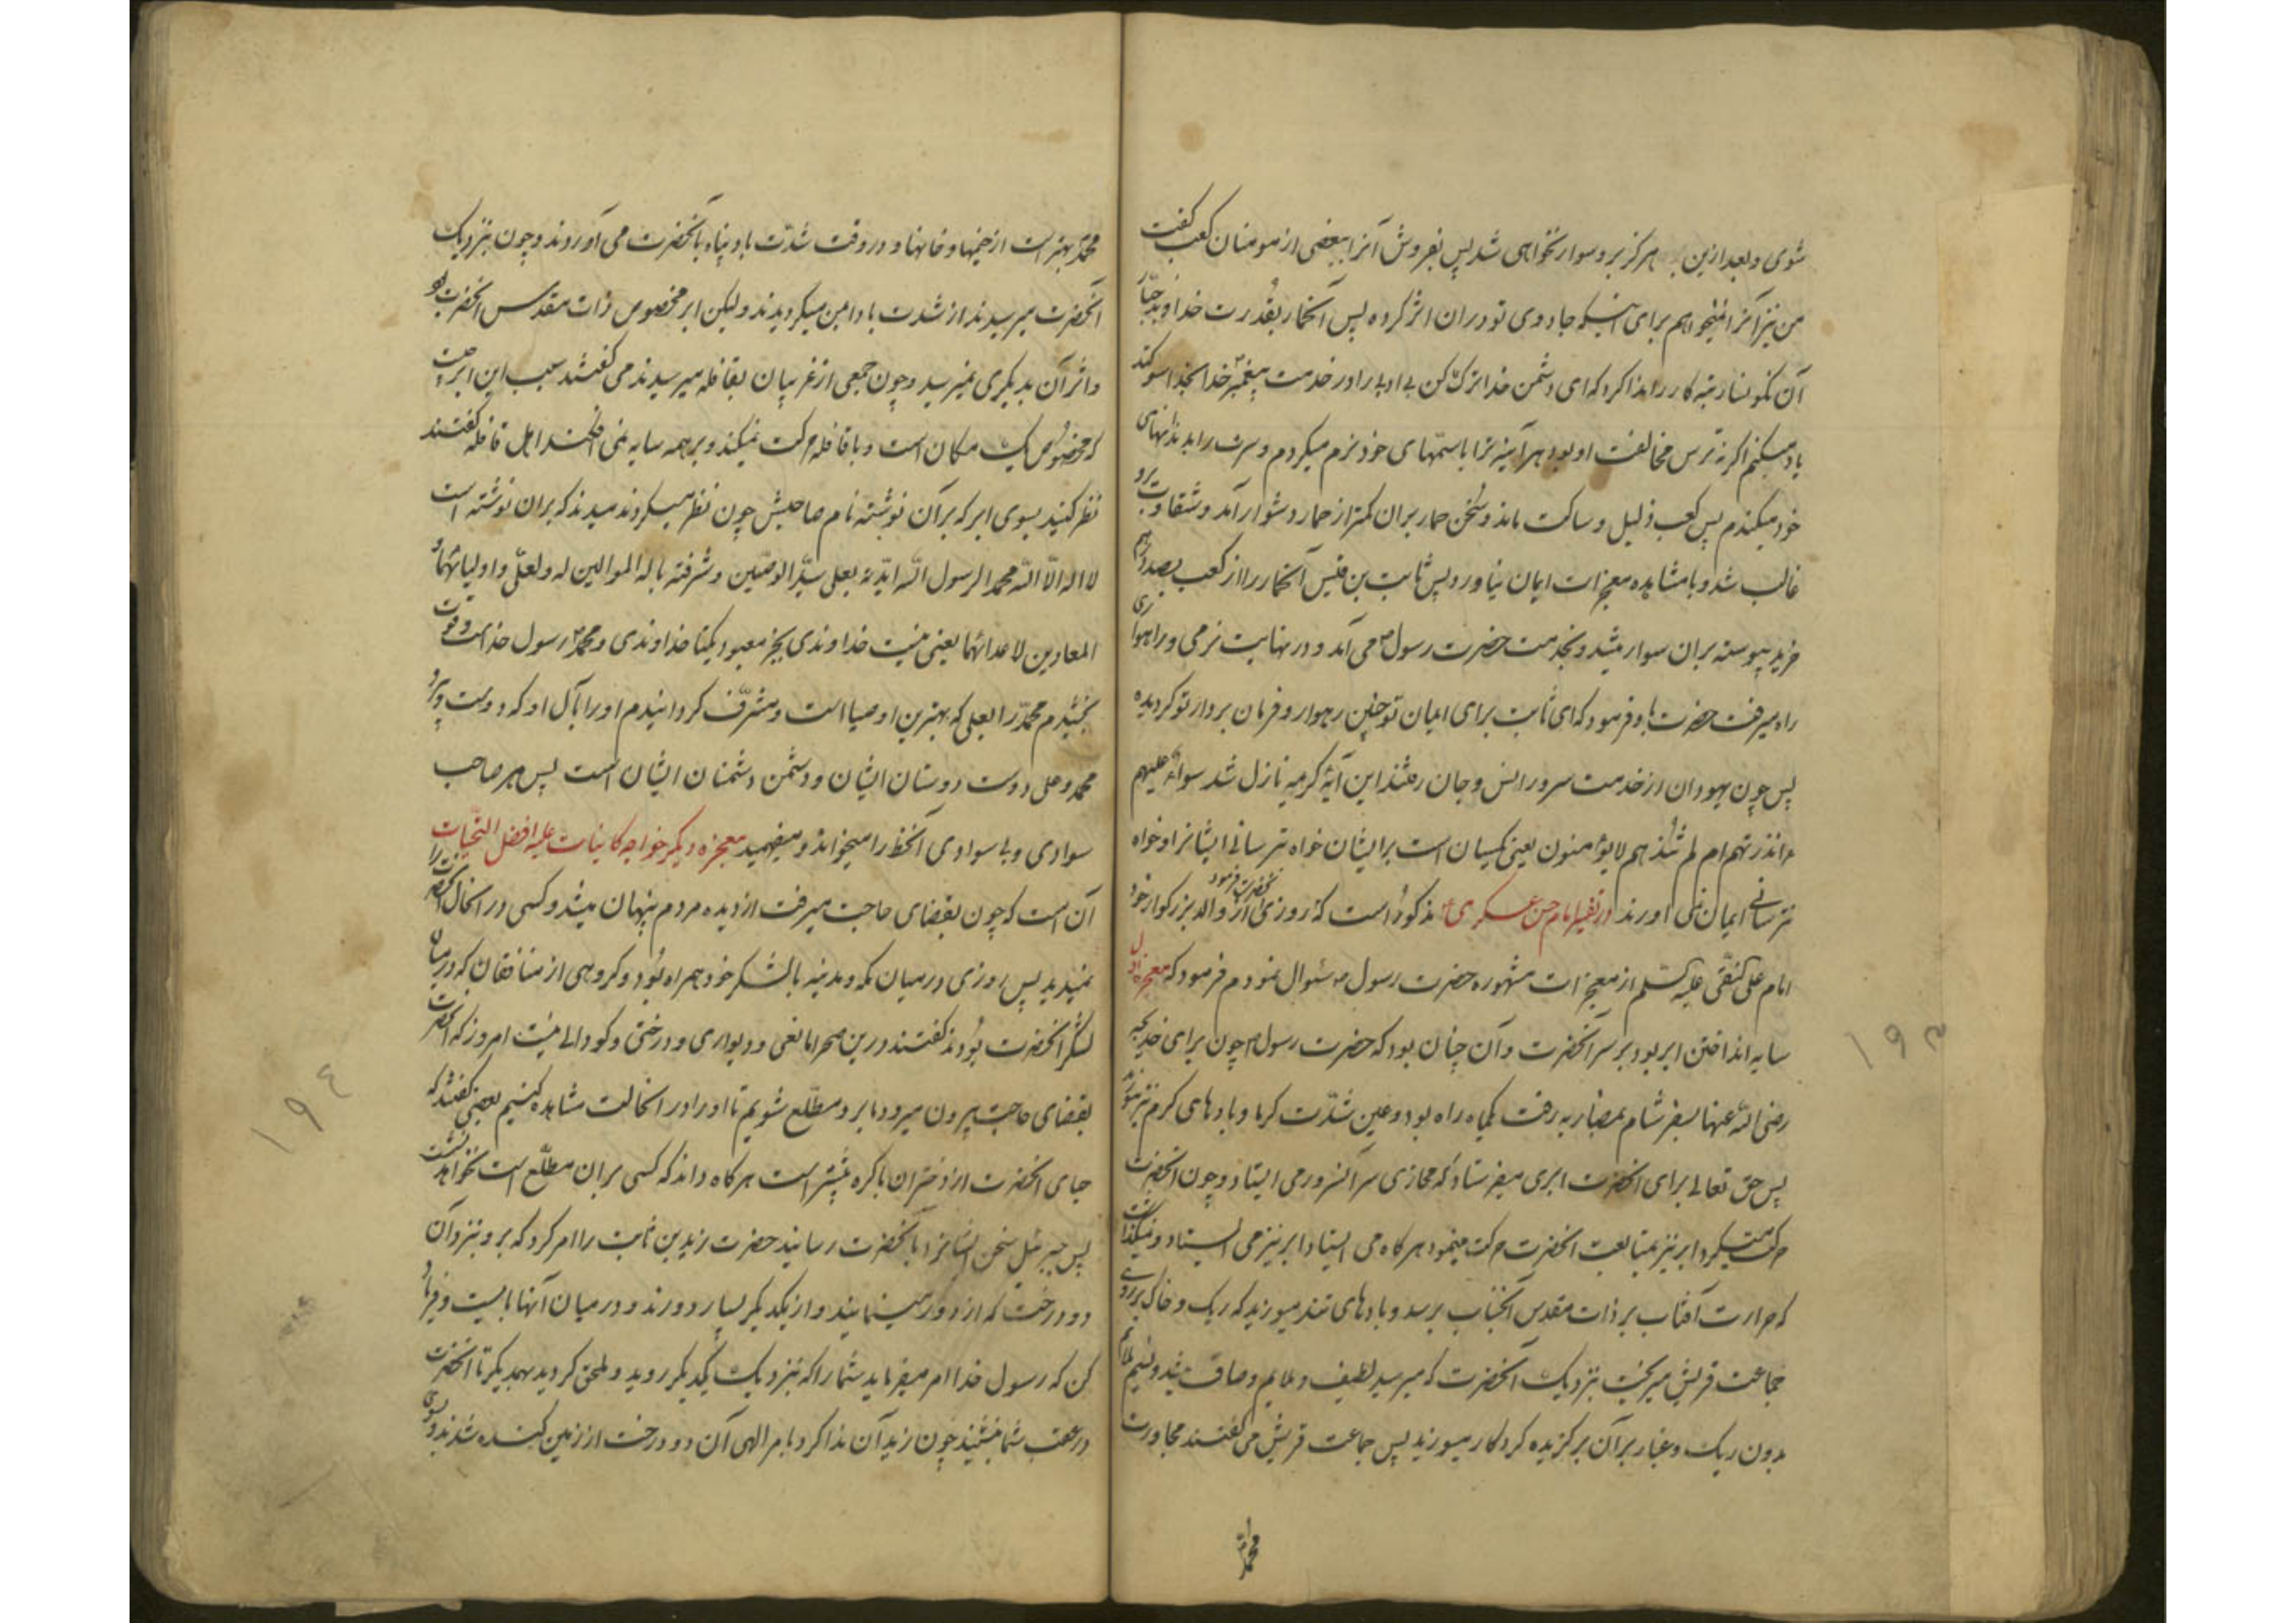 شوی و بعد ازین هرگز برو سوار نخواهی شد پس بفروش آنرا ببعضی از مومنان کعب گفت
من نیز آنرا نمیخواهم برای آنکه جادوی تو دران اثر کرده پس آنحمار بقدرت خداوند جبار
آن نکوهیده کار را ندا کرد که ای دشمن خدا ترک کن بی ادبی را در خدمت پیغمبر خدا بخدا سوکند
یاد میکنم اگر نه ترس مخالفت او بود هر آینه ترا با سمهای خود نرم میکردم و سرت را بدندانهای
خود میکندم پس کعب ذلیل و ساکت ماند و سخن حمار بران کمتر از حمار دشوار آمد و شقاوت برو
غالب شد و با مشاهده معجزات ایمان نیاورد پس ثابت بن قیس آنحمار را از کعب بصد درهم
خرید پیوسته بران سوار میشد و بخدمت حضرت رسول می آمد و در نهایت نرمی و راهواری
راه میرفت حضرت باو فرمود که ای ثابت برای ایمان تو چنین رهوار و فرمان بردار تو کردیده
پس چون یهودان از خدمت سرور انس و جان رفتند این آیۀ کریمه نازل شد سواء علیهم
ءانذرتهم ام لم تنذرهم لایؤمنون یعنی یکسان است بر ایشان خواه بترسانی ایشانرا و خواه
نترسانی ایمان نمی آورند در تفسیر امام حسن عسکری ع مذکور است که آنحضرت فرمود روزی از والد بزرکوار خود
امام علی النقی علیه السلم از معجزات مشهوره حضرت رسول ص سئوال نمودم فرمود که معجزه اول
سایه انداختن ابر بود بر سر آنحضرت و آن چنان بود که حضرت رسول ص چون برای خدیجه
رضی الله عنها بسفر شام بمضاربه رفت یکماه راه بود و عین شدت کرما و بادهای کرم نیز میوزید
پس حق تعالی برای آنحضرت ابری میفرستاد که محاذی سر آنسرور می ایستاد و چون آنحضرت
حرکت میکرد ابر نیز بمتابعت آنحضرت حرکت مینمود هرکاه می ایستاد ابر نیز می ایستاد و نمیکذاشت
که حرارت آفتاب بر ذات مقدس آنجناب برسد و بادهای تند میوزید که ریک و خاک بر روی
جماعت قریش میریخت بنزدیک آنحضرت که میرسید لطیف و ملایم و صاف میشد و نسیم ملایم
بدون ریک و غبار بر آن برکزیده کردکار میوزید پس جماعت قریش می گفتند مجاورت
محمد
۱۹۳
محمد بهتر است از خیمها و خانها و در وقت شدت باد پناه بآنحضرت می آوردند و چون بنزدیک
آنحضرت میرسیدند از شدت باد امین میکردیدند ولیکن ابر مخصوص ذات مقدس آنحضرت بود
و اثر آن بدیکری نمیرسید و چون جمعی از غریبان بقافله میرسیدند می گفتند سبب این ابر چیست
که مخصوص یک مکان است و با قافله حرکت نمیکند و بر همه سایه نمی افکند اهل قافله گفتند
نظر کنید بسوی ابر که بر آن نوشته نام صاحبش چون نظر میکردند میدیدند که بران نوشته است
لا اله الا الله محمد الرسول الله ایدته بعلی سید الوصیین و شرفته باله الموالین له ولعلی و اولیائهما و
المعادین لاعدائهما یعنی نیست خداوندی بجز معبود یکتا خداوندی و محمد ص رسول خداست و قوت
بخشیدم محمد را بعلی که بهترین اوصیا است و مشرف کردانیدم او را بآل او که دوست و پیرو
محمد و علی و دوست دوستان ایشان و دشمن دشمنان ایشان است پس هر صاحب
سوادی و بی سوادی آنخط را میخواند و میفهمید معجزه دیکر خواجه کاینات علیه افضل التحیات
آن است که چون بقضای حاجت میرفت از دیده مردم پنهان میشد و کسی در آنحال آنحضرت را
نمیدید پس روزی در میان مکه و مدینه با لشکر خود همراه بود و کروهی از منافقان که در میان
لشکر آنحضرت بودند گفتند درین صحرا مانعی و دیواری و درختی و کودالی نیست امروز که آنحضرت
بقضای حاجت بیرون میرود ما برو مطلع شویم تا او را در آنحالت مشاهده کنیم بعضی گفتند که
حیای آنحضرت از دختران باکره بیشتر است هرکاه داند که کسی بران مطلع است نخواهد نشست
پس جبرئیل سخن ایشانرا بآنحضرت رسانید حضرت زید بن ثابت را امر کرد که برو بنزد آن
دو درخت که از دور مینمایند و از یکدیکر بسیار دورند و در میان آنها بایست و فریاد
کن که رسول خدا امر میفرماید شما را که بنزدیک یکدیکر روید و ملحق کردید بهمدیکر تا آنحضرت
در عقب شما بنشیند چون زید آن ندا کرد بامر الهی آن دو درخت از زمین کنده شدند و بسوی
۱۹٤